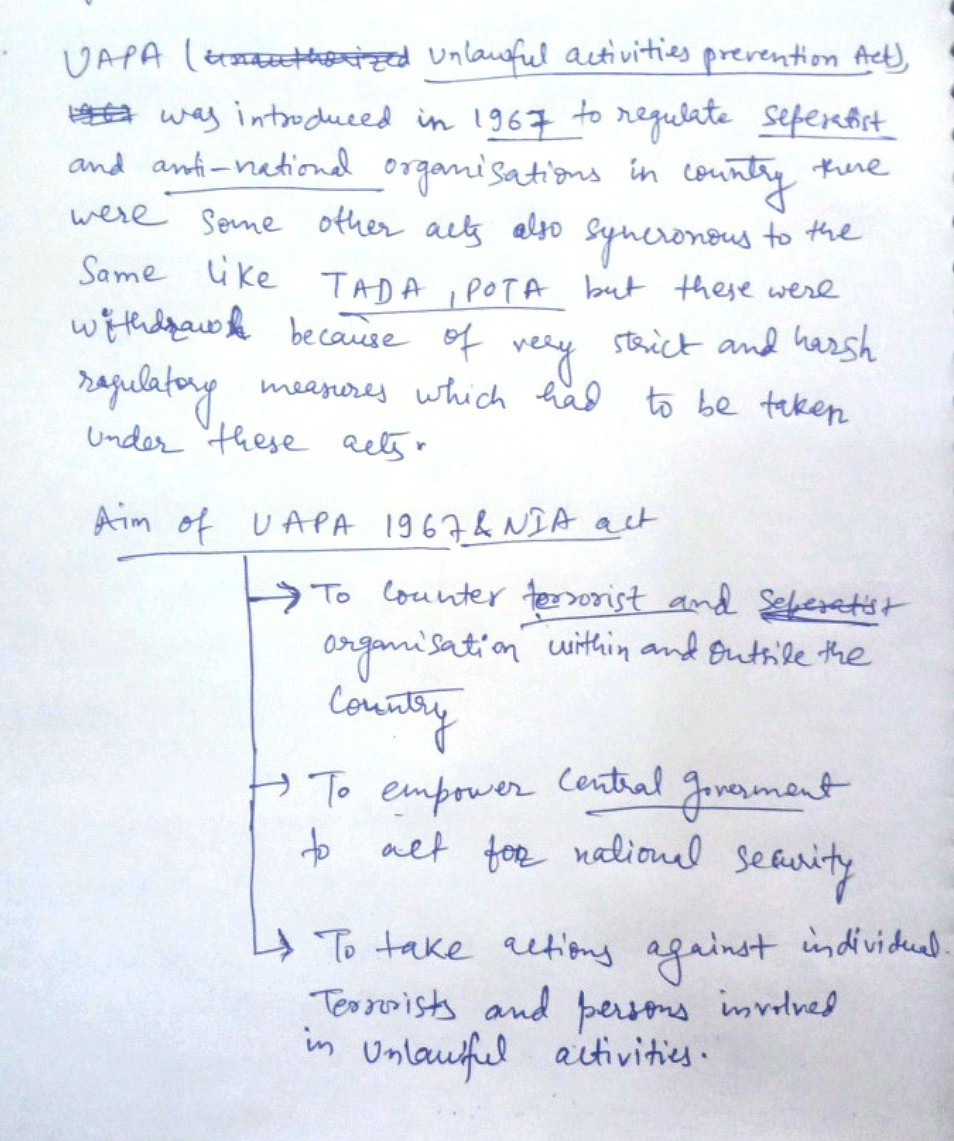 UAPA (unauthorized unlawful activities prevention Act),
1967 was introduced in 1967 to regulate seferatist
and anti-national organisations in country there
were some other acts also syncronous to the
Same like TADA, POTA but these were
withdrawl because of very strict and harsh
ragulatory measures which had to be taken
under these acts.
Aim of UAPA 1967 & NIA act
→ To counter terrorist and seferatist
organisation within and outside the
Country
→ To empower Central Goverment
to act for national security
→ To take actions against individual
Terrorists and persons involved
in unlawful activities.